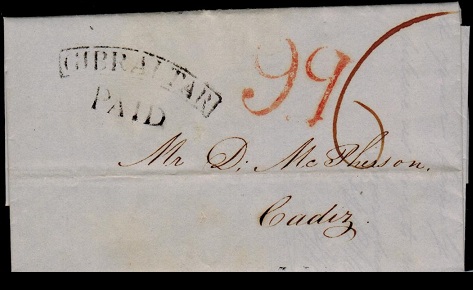 GIBRALTAR
PAID
9 9
Mr. D. McPherson.
Cadiz.